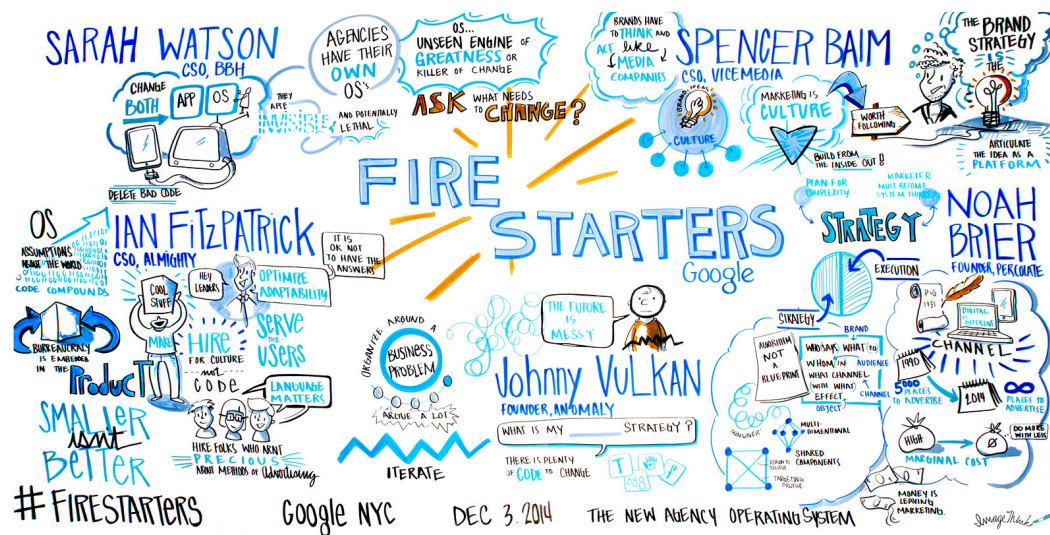 SARAH WATSON
CSO, BBH
CHANGE
BOTH
APP
OS
DELETE BAD CODE
AGENCIES
HAVE THEIR
OWN
OS's
THEY
ARE
INVISIBLE
AND POTENTIALLY
LETHAL
OS...
UNSEEN ENGINE OF
GREATNESS OR
KILLER OF CHANGE
ASK WHAT NEEDS
TO CHANGE?
BRANDS HAVE
TO THINK AND
ACT like
MEDIA
COMPANIES
SPENCER BAIM
CSO, VICE MEDIA
BRAND IDEAS
CULTURE
MARKETING IS
CULTURE
BUILD FROM
THE INSIDE OUT!
WORTH
FOLLOWING
THE BRAND
STRATEGY
IS
THE
ARTICULATE
THE IDEA AS A
PLATFORM
FIRE
STARTERS
Google
OS
ASSUMPTIONS
ABOUT THE WORLD
CODE COMPOUNDS
IAN FITZPATRICK
CSO, ALMIGHTY
COOL
STUFF
MAKE
HEY
LEADERS
OPTIMIZE
ADAPTABILITY
IT IS
OK NOT
TO HAVE THE
ANSWER!
BUREAUCRACY
IS EMBEDDED
IN THE
PRODUCT
SERVE
THE
USERS
HIRE
FOR CULTURE
not
CODE
LANGUAGE
MATTERS
HIRE FOLKS WHO ARNT
PRECIOUS
ABOUT METHODS OF Advertising
SMALLER
isn't
BETTER
ORGANIZE AROUND A
BUSINESS
PROBLEM
ARGUE A LOT
ITERATE
THE FUTURE
IS
MESSY
Johnny VULKAN
FOUNDER, ANOMALY
WHAT IS MY STRATEGY?
THERE IS PLENTY
OF CODE TO CHANGE
PLAN FOR
COMPLEXITY
MARKETER
MUST BECOME
SYSTEM THINKER
STRATEGY
NOAH
BRIER
FOUNDER, PERCOLATE
EXECUTION
STRATEGY
ALGORITHM
NOT
A
BLUEPRINT
BRAND
WHO SAYS WHAT TO
WHOM IN AUDIENCE
WHAT CHANNEL
WITH WHAT
EFFECT
CHANNEL
OBJECT
MULTI-
DIMENTIONAL
SHARED
COMPONENTS
TARGETING
PROFILE
P&G
1931
DIGITAL
IS
DIFFERENT
CHANNEL
1990
5000
PLACES
TO ADVERTISE
2014
∞
PLACES TO
ADVERTISE
HIGH
Ø
DO MORE
WITH LESS
MARGINAL COST
MONEY IS
LEAVING
MARKETING.
#FIRESTARTERS
Google NYC
DEC 3. 2014
THE NEW AGENCY OPERATING SYSTEM
ImageThink